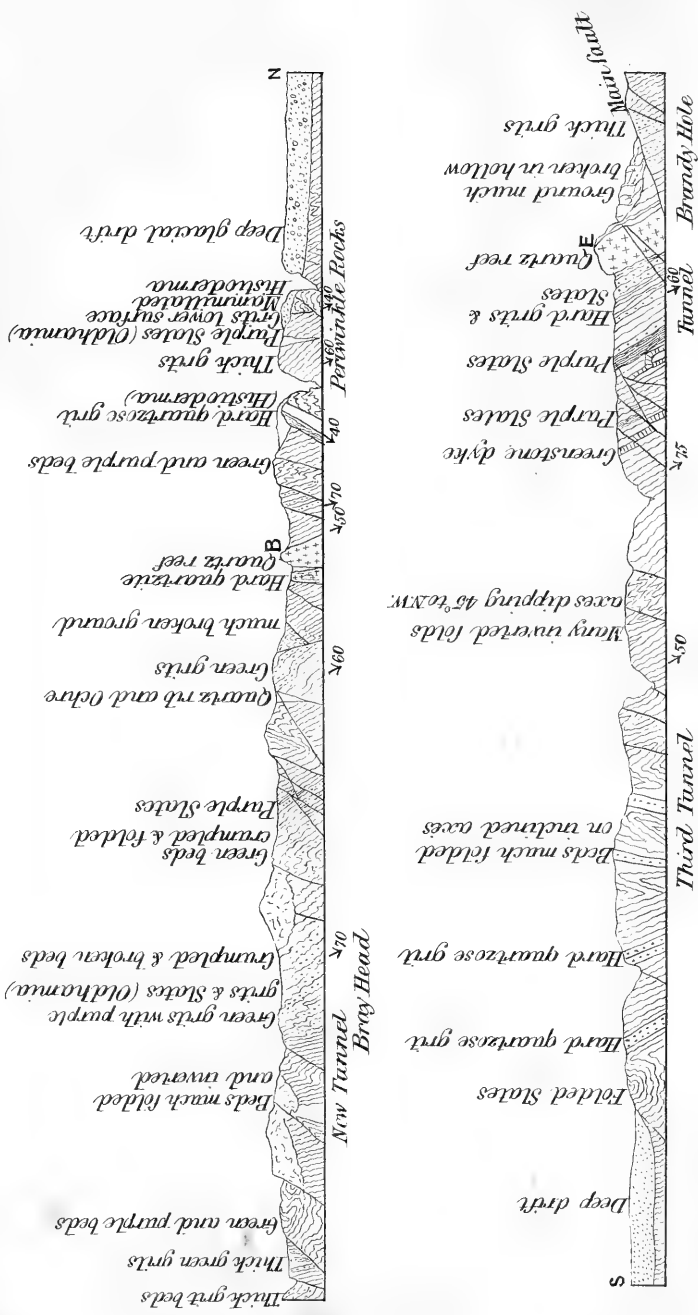 N
Deep glacial drift
Histioderma
Mammillated
Grits lower surface
Purple Slates (Oldhamia)
Thick grits
Hard quartzose grit
(Histioderma)
Green and purple beds
B
Quartz reef
Hard quartzite
much broken ground
Green grits
Quartz rib and Ochre
Purple Slates
Green beds
crumpled & folded
Crumpled & broken beds
Green grits with purple
grits & Slates (Oldhamia)
Beds much folded
and inverted
Green and purple beds
Thick green grits
Thick grit beds
40
60
Periwinkle Rocks
40
70
50
60
70
Bray Head
New Tunnel
Main fault
Thick grits
Ground much
broken in hollow
E
Quartz reef
Hard grits &
Slates
Purple Slates
Purple Slates
Greenstone dyke
Many inverted folds
axes dipping 45° to N.W.
Beds much folded
on inclined axes
Hard quartzose grit
Hard quartzose grit
Folded Slates
Deep drift
S
Brandy Hole
Tunnel
60
75
50
Third Tunnel